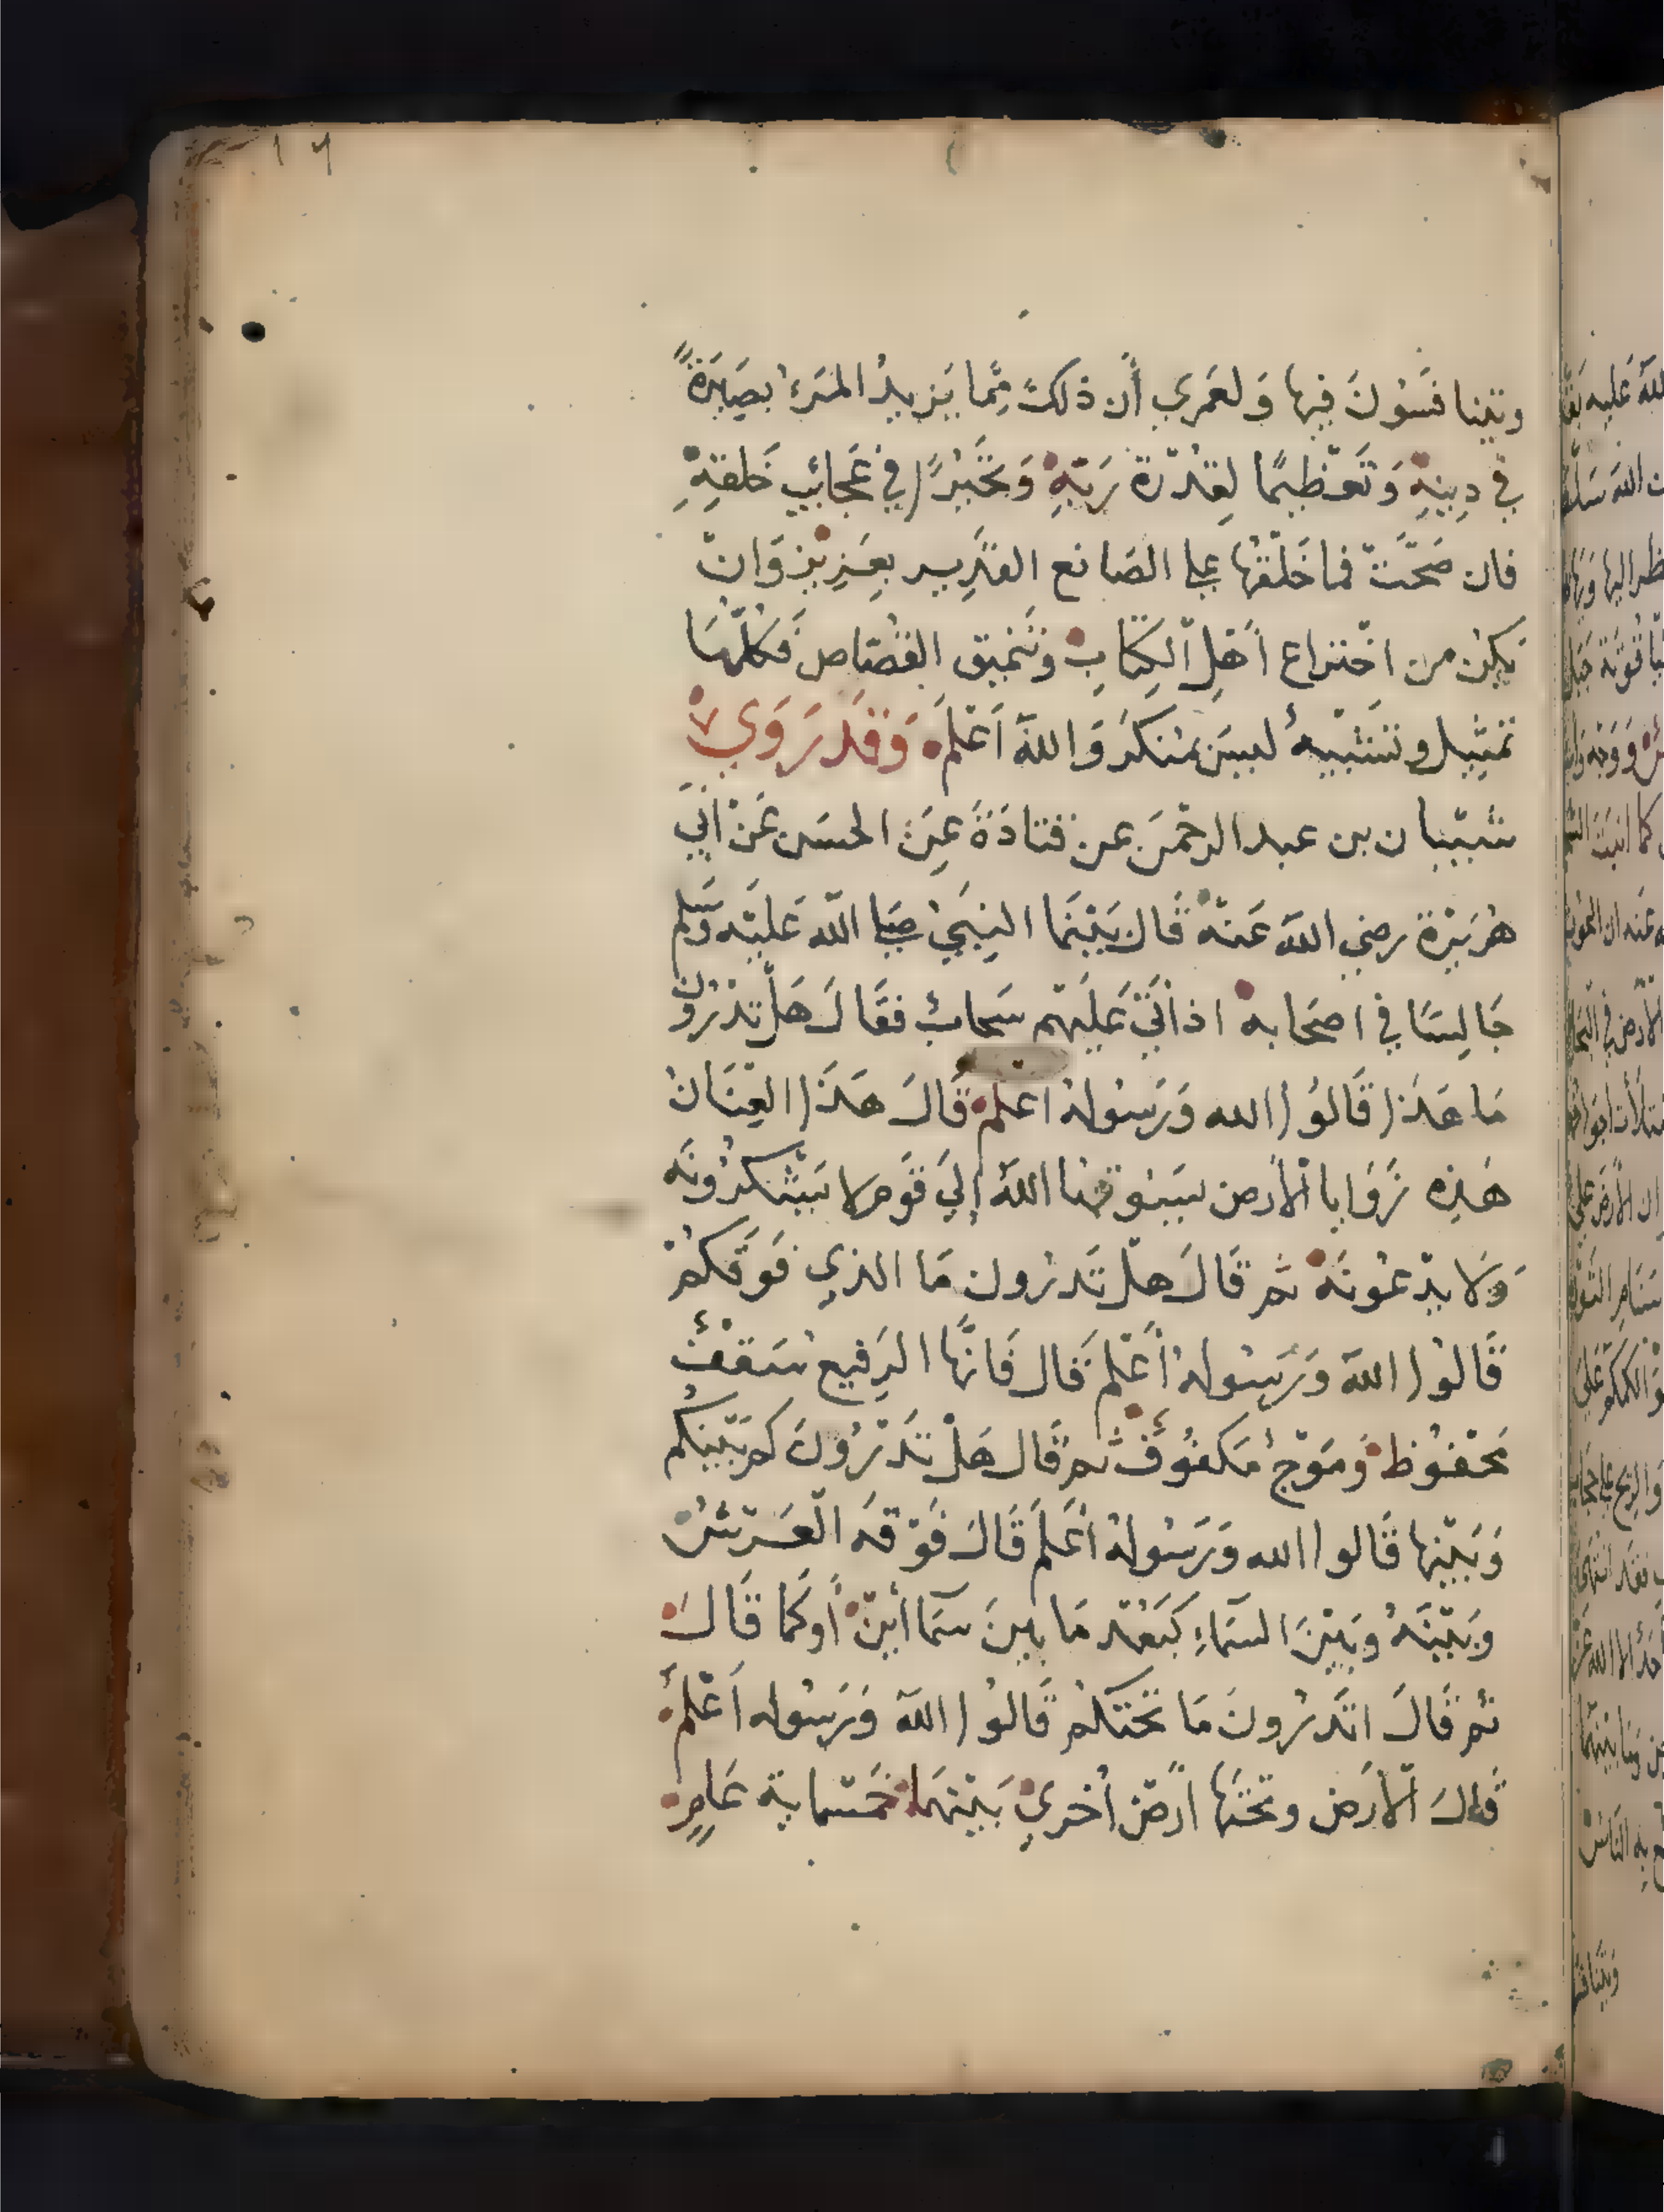 ويتنافسون فيها ولعمري أن ذلك مما يزيد المرء بصيرة
في دينه وتعظيما لقدرة ربه وتحيرا في عجائب خلقه
فان صحت فما خلقها على الصانع القدير بعزيز وان
يكن من اختراع أهل الكتاب وتنميق القصاص فكلها
تمثيل وتشبيه ليس بمنكر والله اعلم وقد روى
شيبان بن عبد الرحمن عن قتادة عن الحسن عن ابي
هريرة رضي الله عنه قال بينما النبي صلى الله عليه وسلم
جالسا في اصحابه اذ اتى عليهم سحاب فقال هل تدرون
ما هذا قالوا الله ورسوله اعلم قال هذا العنان
هذه زوايا الأرض يسوقها الله إلى قوم لا يشكرونه
ولا يدعونه ثم قال هل تدرون ما الذي فوقكم
قالوا الله ورسوله أعلم قال فانها الرفيع سقف
محفوظ وموج مكفوف ثم قال هل تدرون كم بينكم
وبينها قالوا الله ورسوله أعلم قال فوقه العرش
وبينه وبين السماء كبعد ما بين سماأين أو كما قال
ثم قال اتدرون ما تحتكم قالوا الله ورسوله اعلم
قال الأرض وتحتها ارض أخرى بينهما خمسماية عام